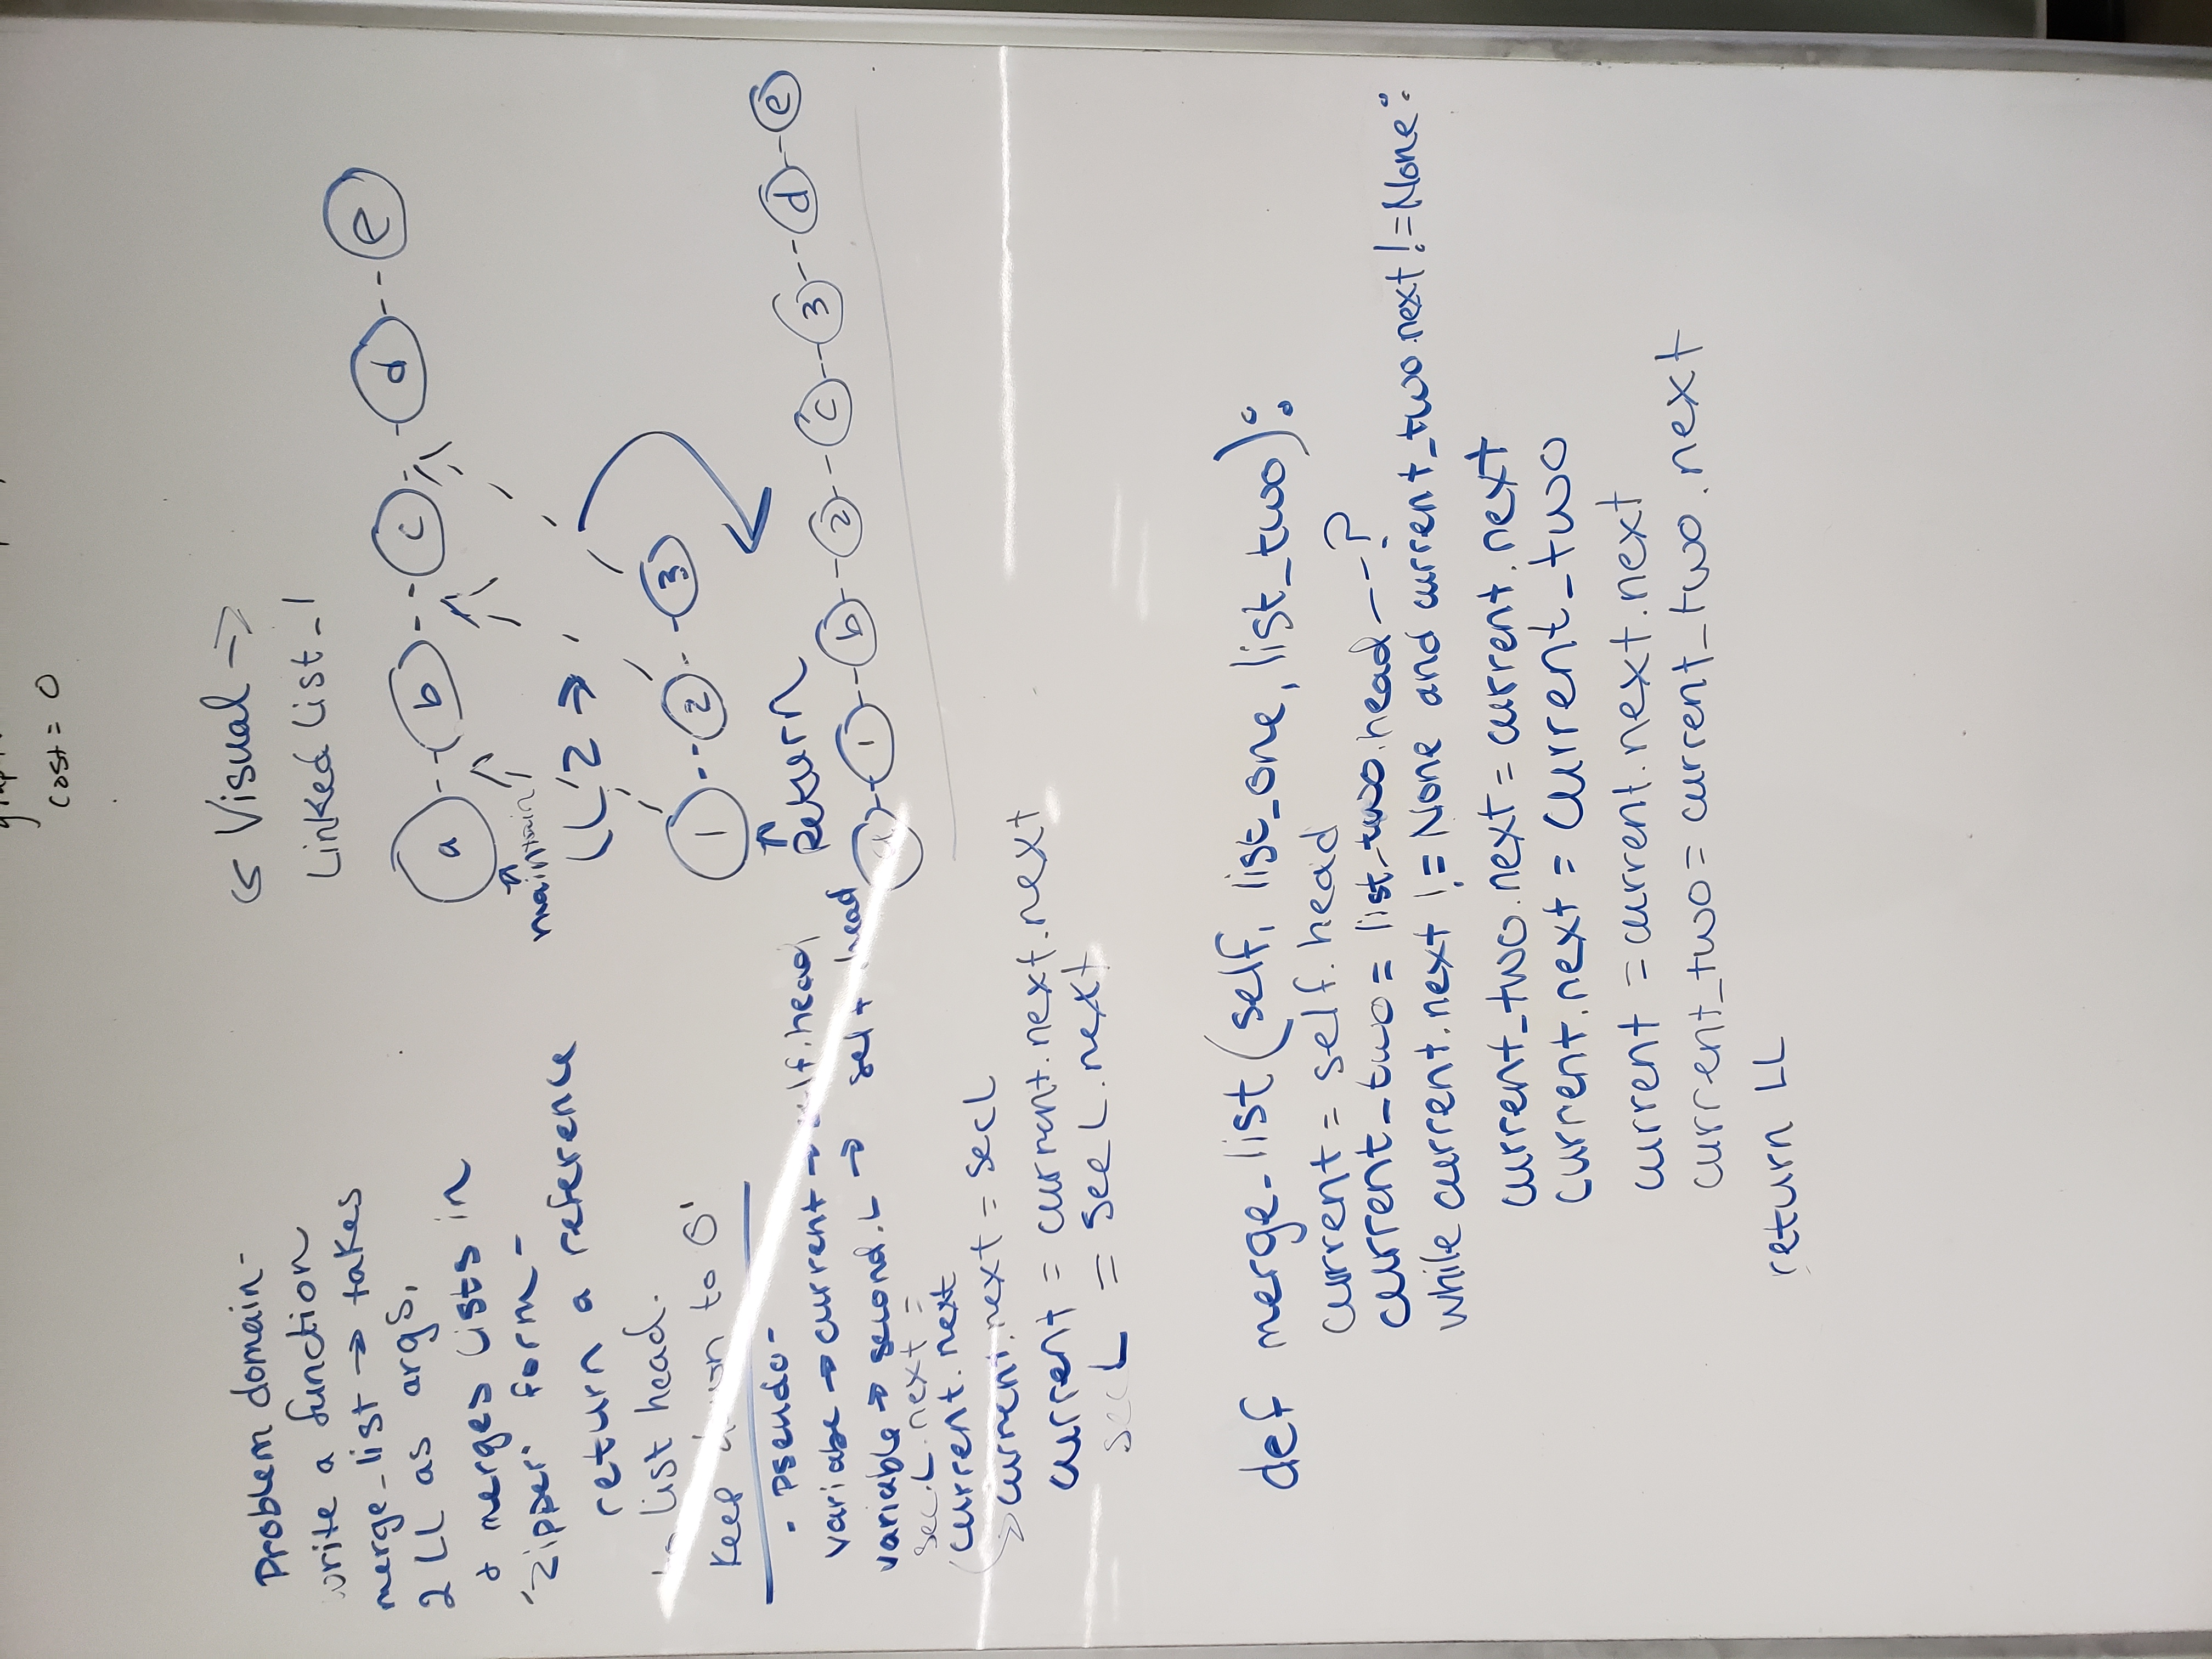 cost = 0
Problem domain -
write a function
merge_list → takes
2 LL as args,
& merges lists in
"Zipper" form -
return a reference
to list head.
Keep down to O'
- Pseudo -
variabe → current → self.head
variable → second.L → self.head
sec.L.next =
current.next
current.next = secL
current = current.next.next
secL = secL.next
Visual →
Linked List_1
a -- b -- c -- d -- e
maintain
LL 2 →
1 -- 2 -- 3
Return
a -- 1 -- b -- 2 -- c -- 3 -- d -- e
def merge_list(self, list_one, list_two):
current = self.head
current_two = list_two.head --?
while current.next != None and current_two.next != None:
current_two.next = current.next
current.next = current_two
current = current.next.next
current_two = current_two.next
return LL